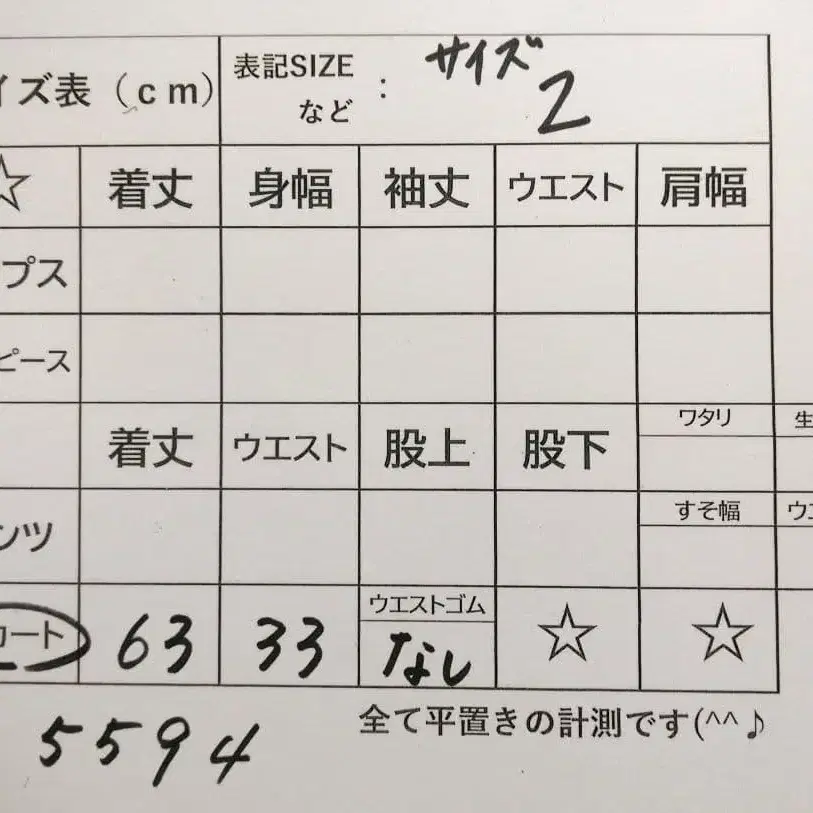 イズ表（cm） 表記SIZEなど： サイズ2
☆ 着丈 身幅 袖丈 ウエスト 肩幅
プス
ピース
着丈 ウエスト 股上 股下 ワタリ 生
ンツ すそ幅 ウエ
カート 63 33 ウエストゴム なし ☆ ☆
全て平置きの計測です(^^♪
5594